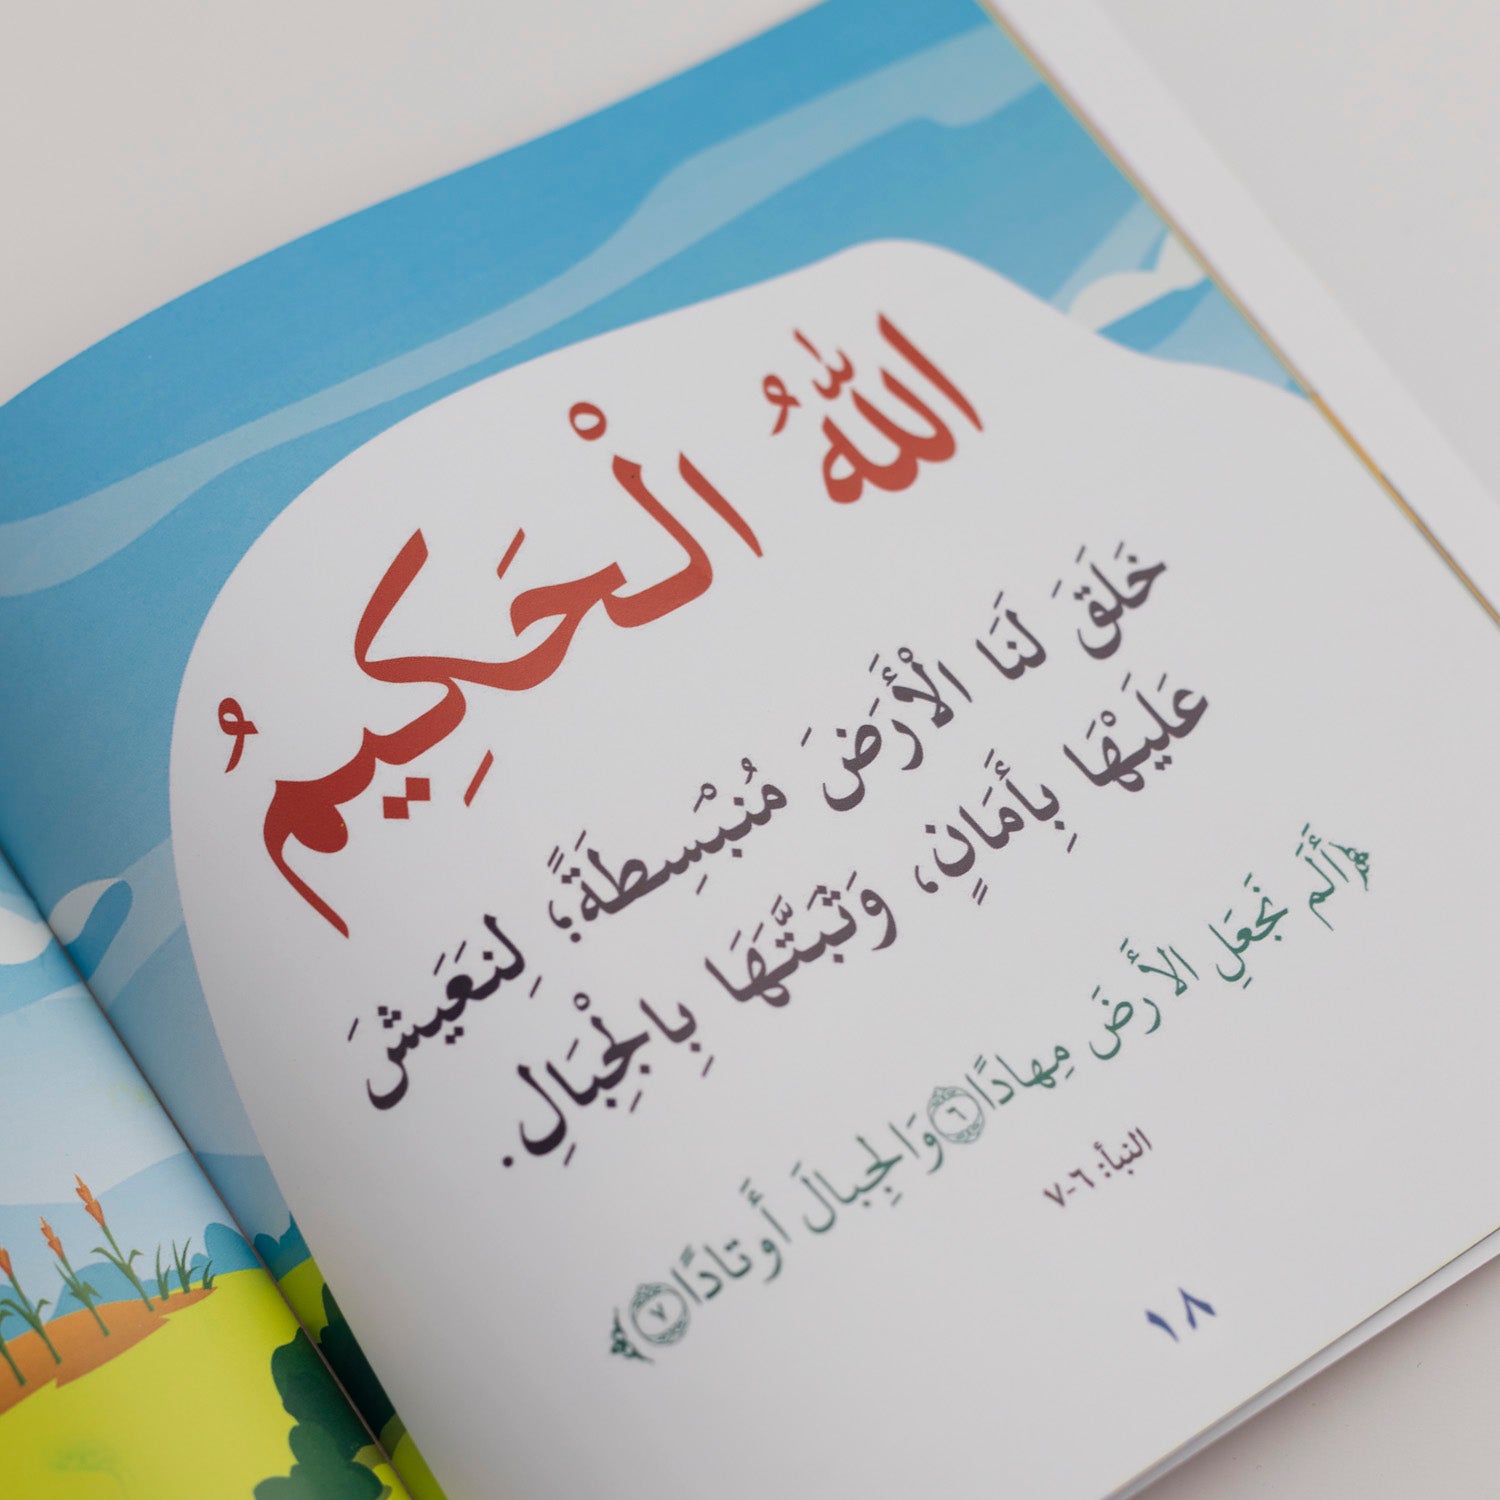 اللَّهُ الْحَكِيمُ
خَلَقَ لَنَا الْأَرْضَ مُنْبَسِطَةً؛ لِنَعَيشَ
عَلَيْهَا بِأَمَانٍ، وَثَبَّتَهَا بِالْجِبَالِ.
﴿أَلَم نَجعَلِ الأَرضَ مِهادًا ۝٦ وَالجِبالَ أَوتادًا ۝٧﴾
النبأ: ٦-٧
١٨